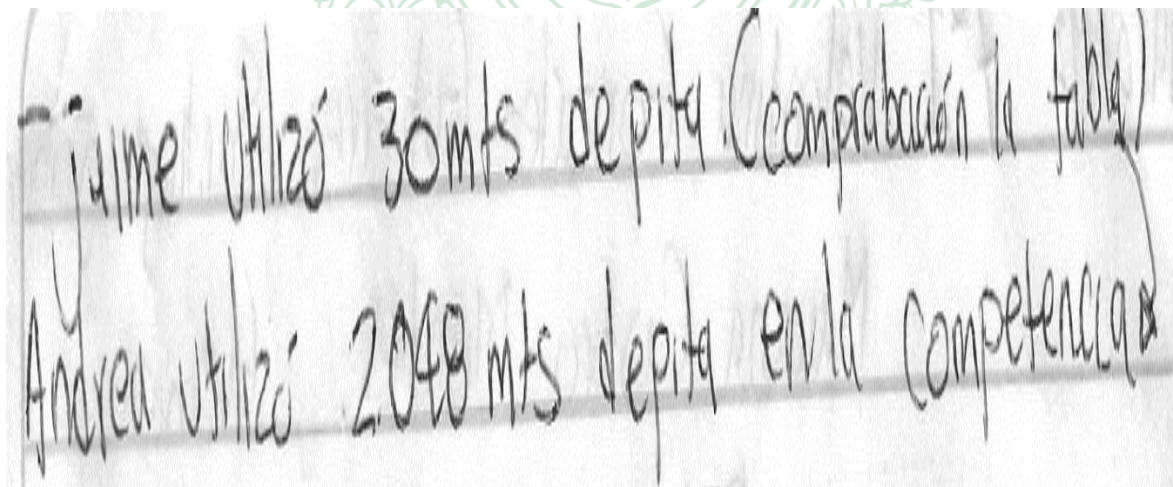 - jaime utilizó 30mts de pita. (comprobación la tabla)
Andrea utilizó 2.048 mts de pita en la competencia